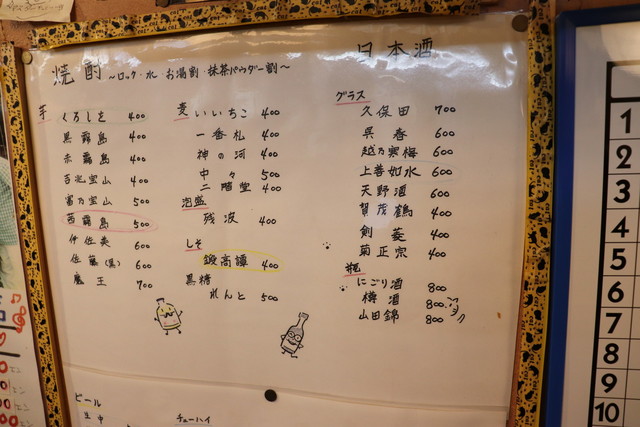 焼酎 ~ロック・水・お湯割・抹茶パウダー割~
芋
くろしを 400
黒霧島 400
赤霧島 400
吉兆宝山 400
富乃宝山 500
茜霧島 500
伊佐美 600
佐藤(黒) 600
魔王 700
麦
いいちこ 400
一番札 400
神の河 400
中々 500
二階堂 400
泡盛
残波 400
しそ
鍛高譚 400
黒糖
れんと 500
日本酒
グラス
久保田 700
呉春 600
越乃寒梅 600
上善如水 600
天野酒 600
賀茂鶴 400
剣菱 400
菊正宗 400
瓶
にごり酒 800
樽酒 800
山田錦 800
ビール
生中
チューハイ
1
2
3
4
5
6
7
8
9
10